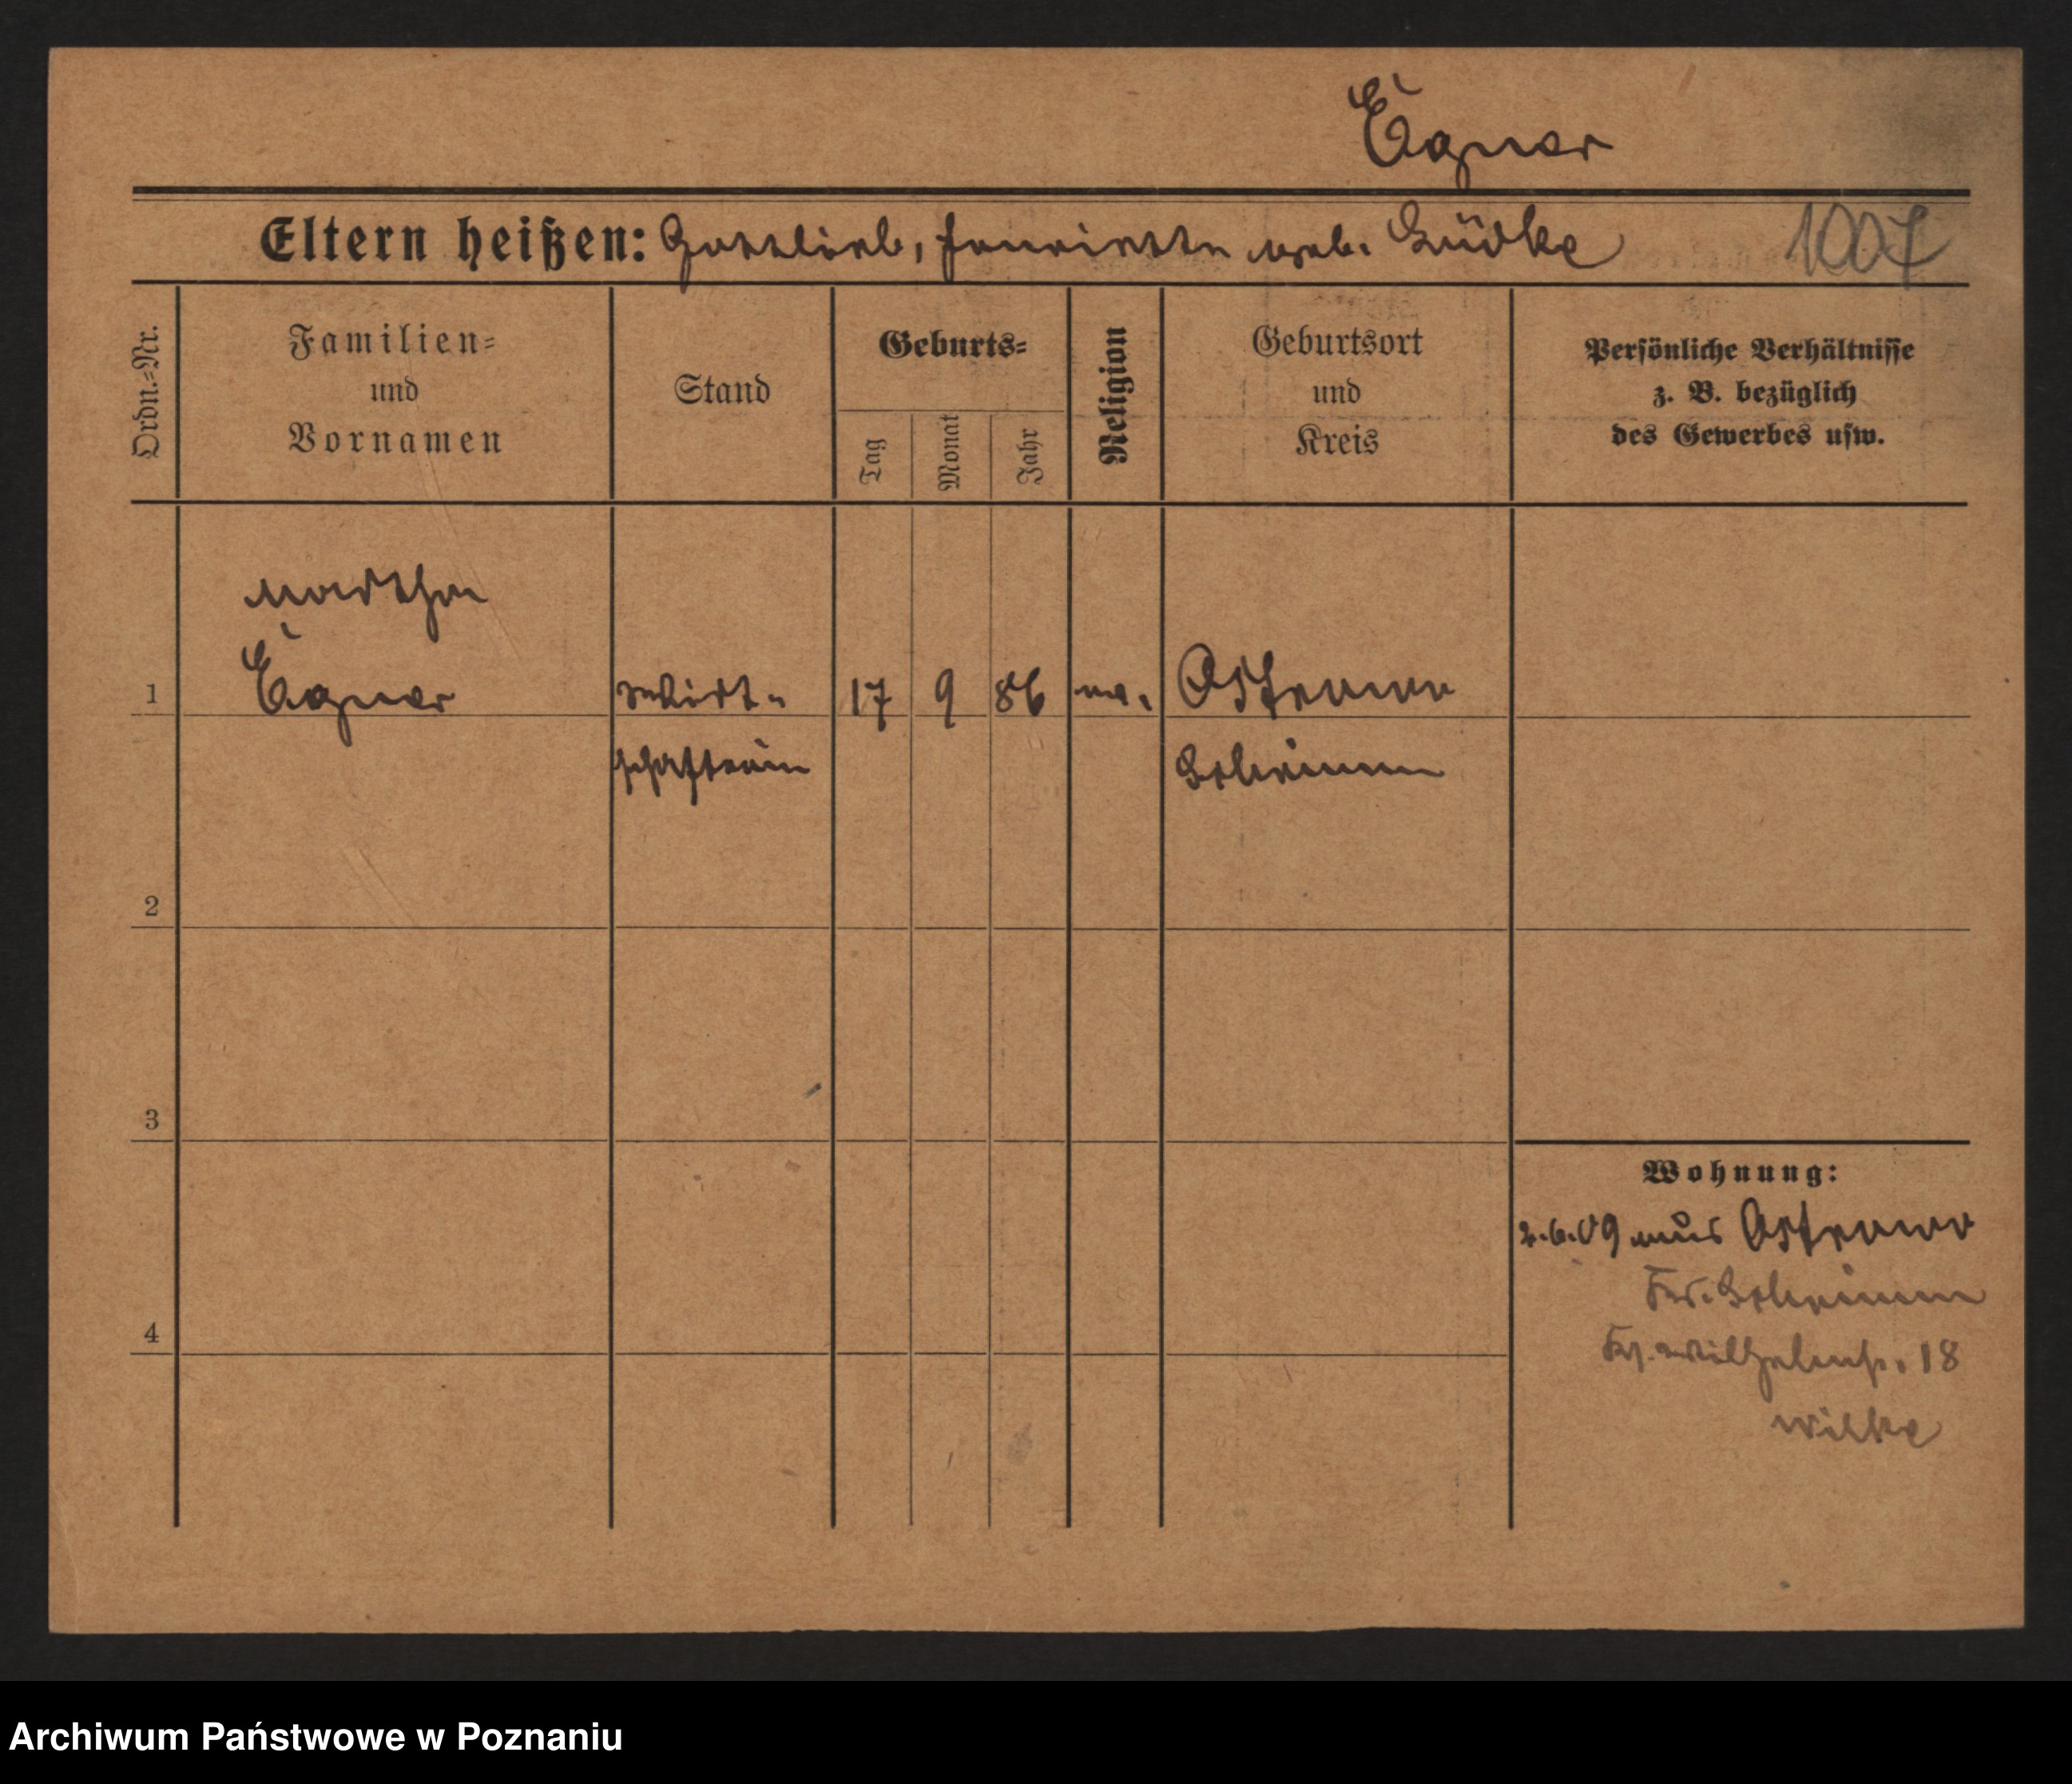 Egner
Eltern heißen: Gottlieb, Henriette geb. Lüdke 1007
Ordn.-Nr.
Familien-
und
Vornamen
Stand
Geburts-
Tag
Monat
Jahr
Religion
Geburtsort
und
Kreis
Persönliche Verhältnisse
z. B. bezüglich
des Gewerbes usw.
Martha
1 Egner Wirt- 17 9 86 ev. Ostrowo
schafterin
2
3
4
Wohnung:
2.6.09 aus Ostrowo
Wilhelmstr. 18
Wilke
Archiwum Państwowe w Poznaniu